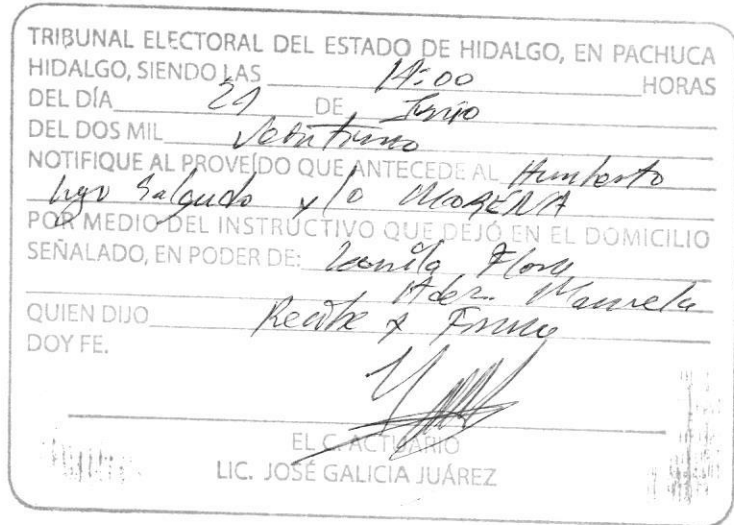 TRIBUNAL ELECTORAL DEL ESTADO DE HIDALGO, EN PACHUCA
HIDALGO, SIENDO LAS 14:00 HORAS
DEL DÍA 21 DE Junio
DEL DOS MIL
NOTIFIQUE AL PROVEÍDO QUE ANTECEDE AL Humberto
Lugo Salgado y/o MORENA
POR MEDIO DEL INSTRUCTIVO QUE DEJÓ EN EL DOMICILIO
SEÑALADO, EN PODER DE: Flores
Manuela
QUIEN DIJO Recibe y Firma
DOY FE.
EL C. ACTUARIO
LIC. JOSÉ GALICIA JUÁREZ